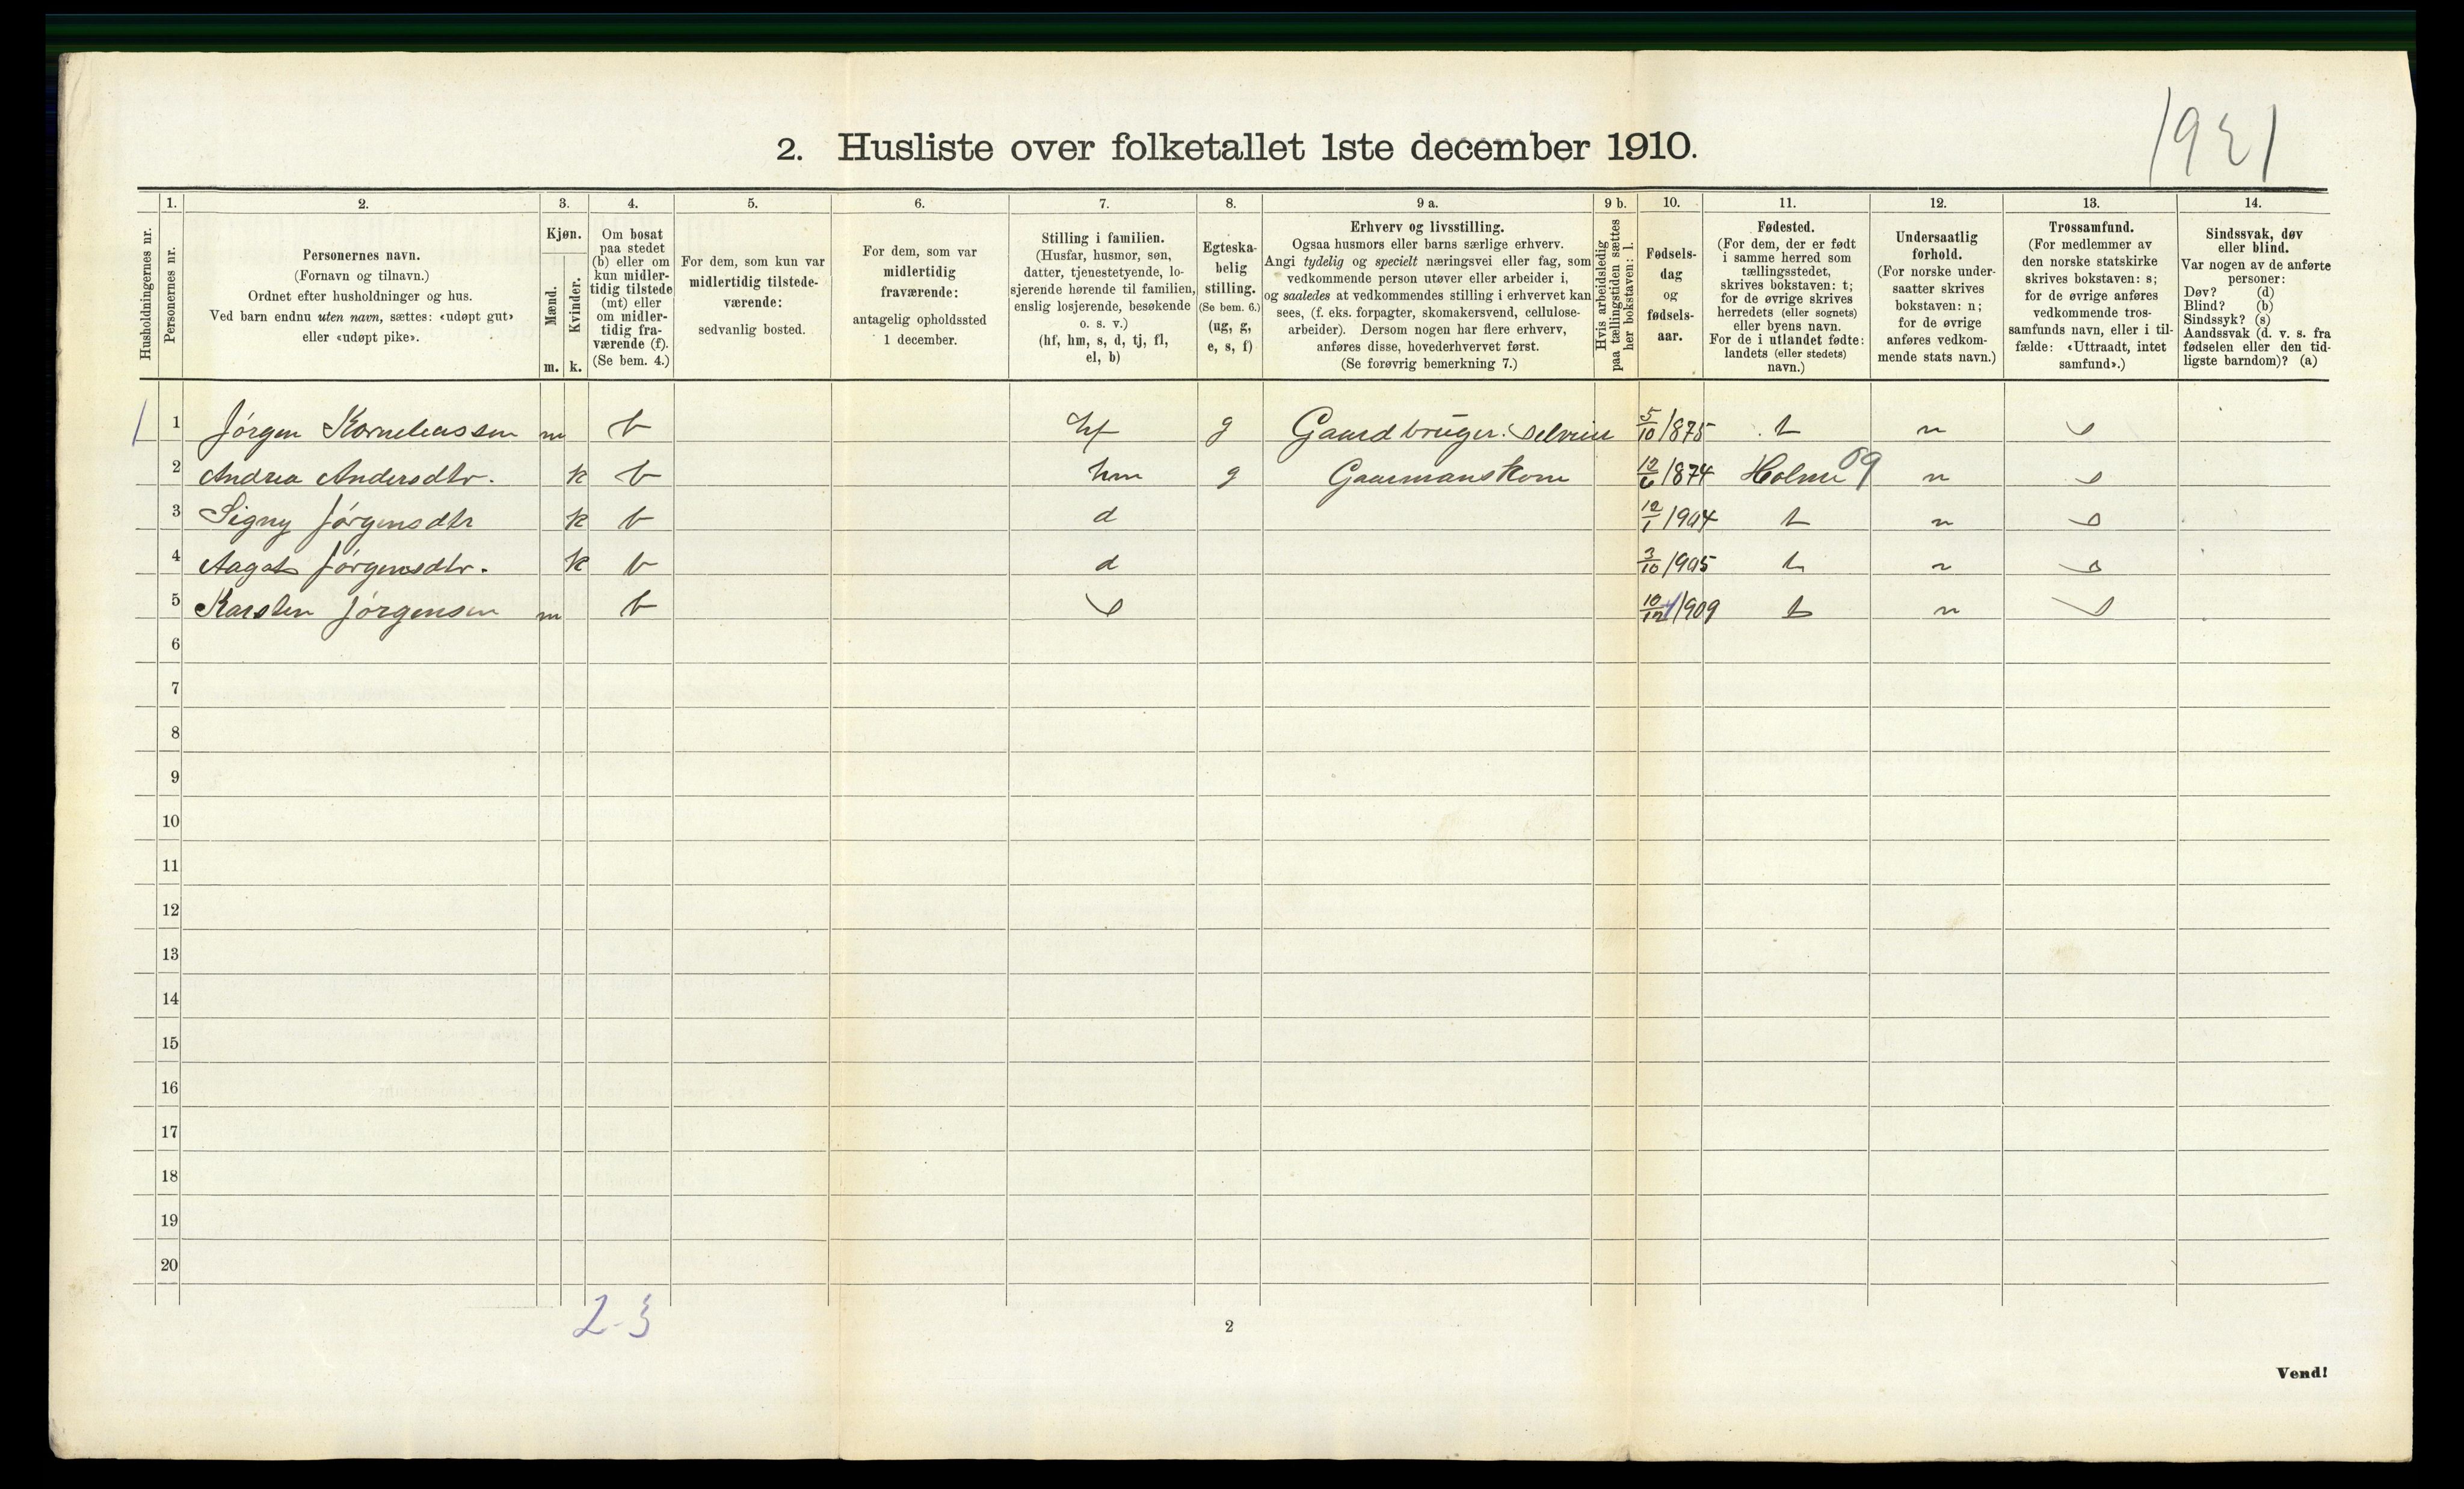 1921
2. Husliste over folketallet 1ste december 1910.
Husholdningernes nr.
1.
Personernes nr.
2.
Personernes navn.
(Fornavn og tilnavn.)
Ordnet efter husholdninger og hus.
Ved barn endnu uten navn, sættes: «udøpt gut»
eller «udøpt pike».
3.
Kjøn.
Mænd.
Kvinder.
m. k.
4.
Om bosat
paa stedet
(b) eller om
kun midler-
tidig tilstede
(mt) eller
om midler-
tidig fra-
værende (f).
(Se bem. 4.)
5.
For dem, som kun var
midlertidig tilstede-
værende:
sedvanlig bosted.
6.
For dem, som var
midlertidig
fraværende:
antagelig opholdssted
1 december.
7.
Stilling i familien.
(Husfar, husmor, søn,
datter, tjenestetyende, lo-
sjerende hørende til familien,
enslig losjerende, besøkende
o. s. v.)
(hf, hm, s, d, tj, fl,
el, b)
8.
Egteska-
belig
stilling.
(Se bem. 6.)
(ug, g,
e, s, f)
9 a.
Erhverv og livsstilling.
Ogsaa husmors eller barns særlige erhverv.
Angi tydelig og specielt næringsvei eller fag, som
vedkommende person utøver eller arbeider i,
og saaledes at vedkommendes stilling i erhvervet kan
sees, (f. eks. forpagter, skomakersvend, cellulose-
arbeider). Dersom nogen har flere erhverv,
anføres disse, hovederhvervet først.
(Se forøvrig bemerkning 7.)
9 b.
Hvis arbeidsledig
paa tællingstiden sættes
her bokstaven: l.
10.
Fødsels-
dag
og
fødsels-
aar.
11.
Fødested.
(For dem, der er født
i samme herred som
tællingsstedet,
skrives bokstaven: t;
for de øvrige skrives
herredets (eller sognets)
eller byens navn.
For de i utlandet fødte:
landets (eller stedets)
navn.)
12.
Undersaatlig
forhold.
(For norske under-
saatter skrives
bokstaven: n;
for de øvrige
anføres vedkom-
mende stats navn.)
13.
Trossamfund.
(For medlemmer av
den norske statskirke
skrives bokstaven: s;
for de øvrige anføres
vedkommende tros-
samfunds navn, eller i til-
fælde: «Uttraadt, intet
samfund».)
14.
Sindssvak, døv
eller blind.
Var nogen av de anførte
personer:
Døv? (d)
Blind? (b)
Sindssyk? (s)
Aandssvak (d. v. s. fra
fødselen eller den tid-
ligste barndom)? (a)
1 1 Jórgen Korneliussen m b hf g Gaardbruger. Selveier 5/10 1875 t n s
2 Andrea Andersdtr. k b hm g Gaarmanskone 12/6 1874 Holme 09 n s
3 Signy Jórgensdtr k b d 12/1 1904 t n s
4 Aagot Jórgensdtr. k b d 3/10 1905 t n s
5 Karsten Jórgensen m b s 10/12 1909 t n s
6
7
8
9
10
11
12
13
14
15
16
17
18
19
20
2-3
2
Vend!